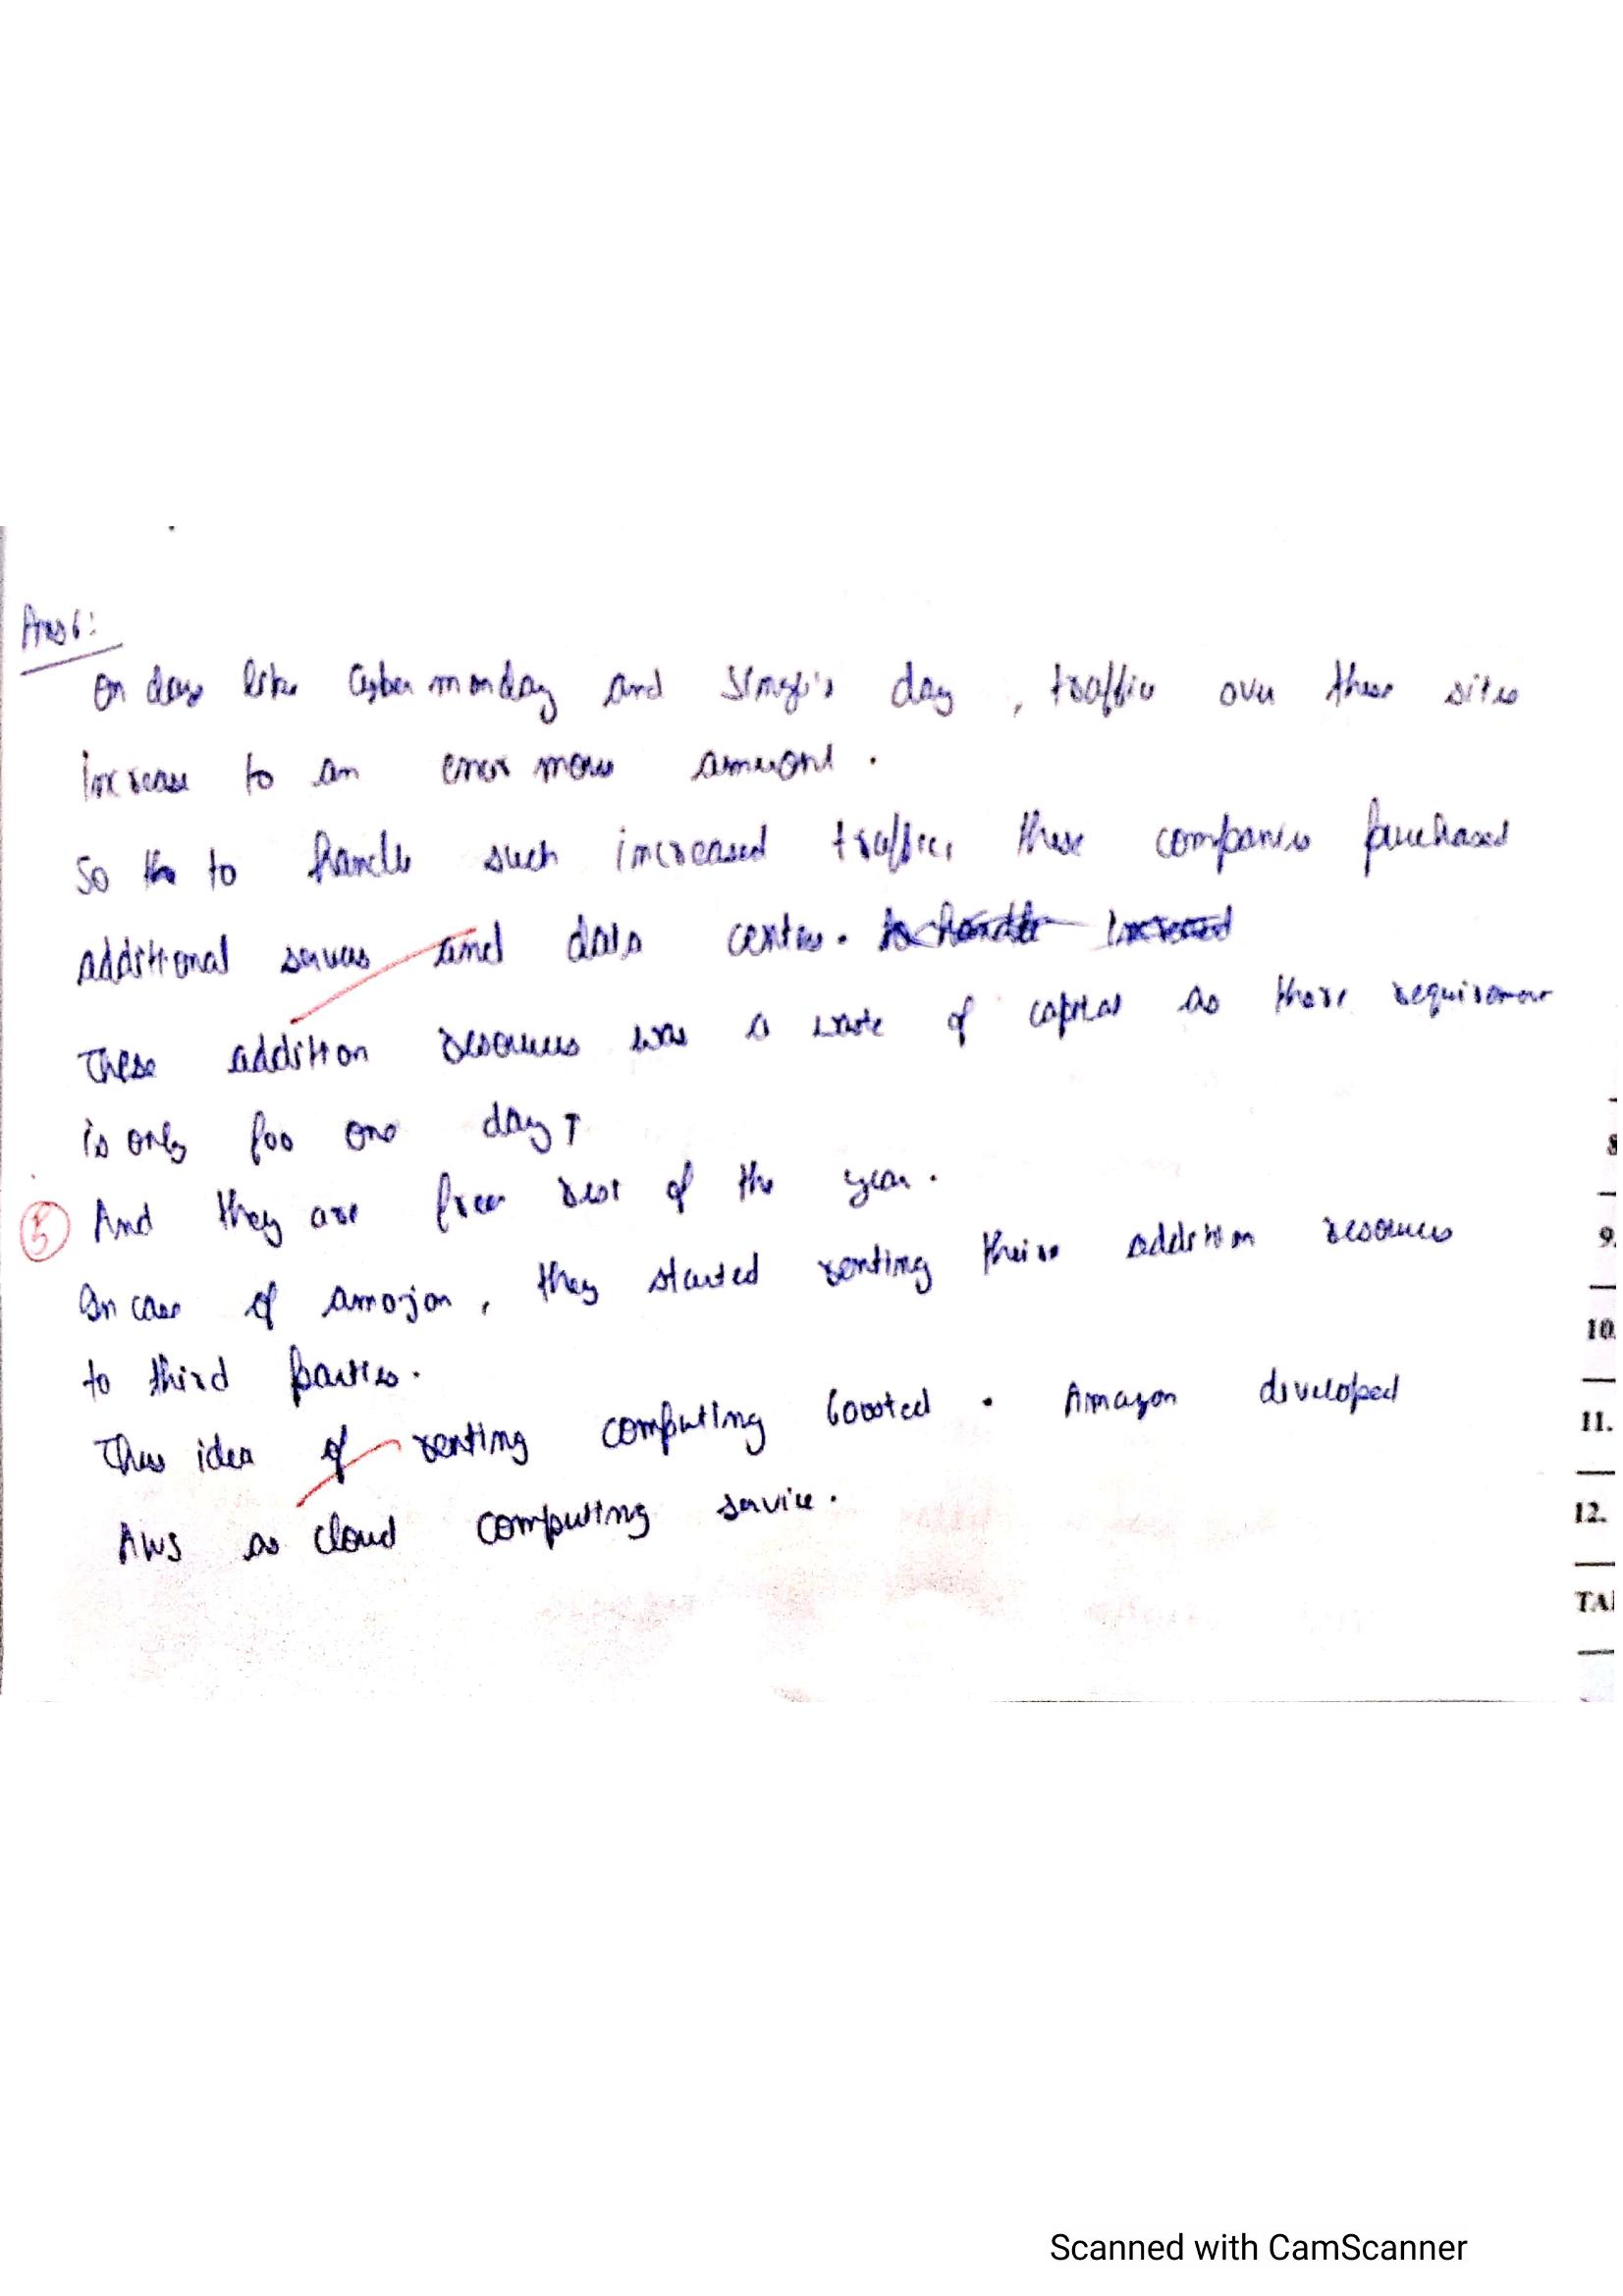 Ans 6:
On days like Cyber monday and Single's day , traffic over these sites
increase to an enormous amount .
So to handle such increased traffic, these companies purchased
additional servers and data centers.
These addition resources was a waste of capital as there requirement
is only for one day
5 And they are free rest of the year .
In case of amazon , they started renting their addition resources
to third parties.
This idea of renting computing boosted . Amazon developed
AWS as cloud computing service .
8
9.
10.
11.
12.
TA
Scanned with CamScanner